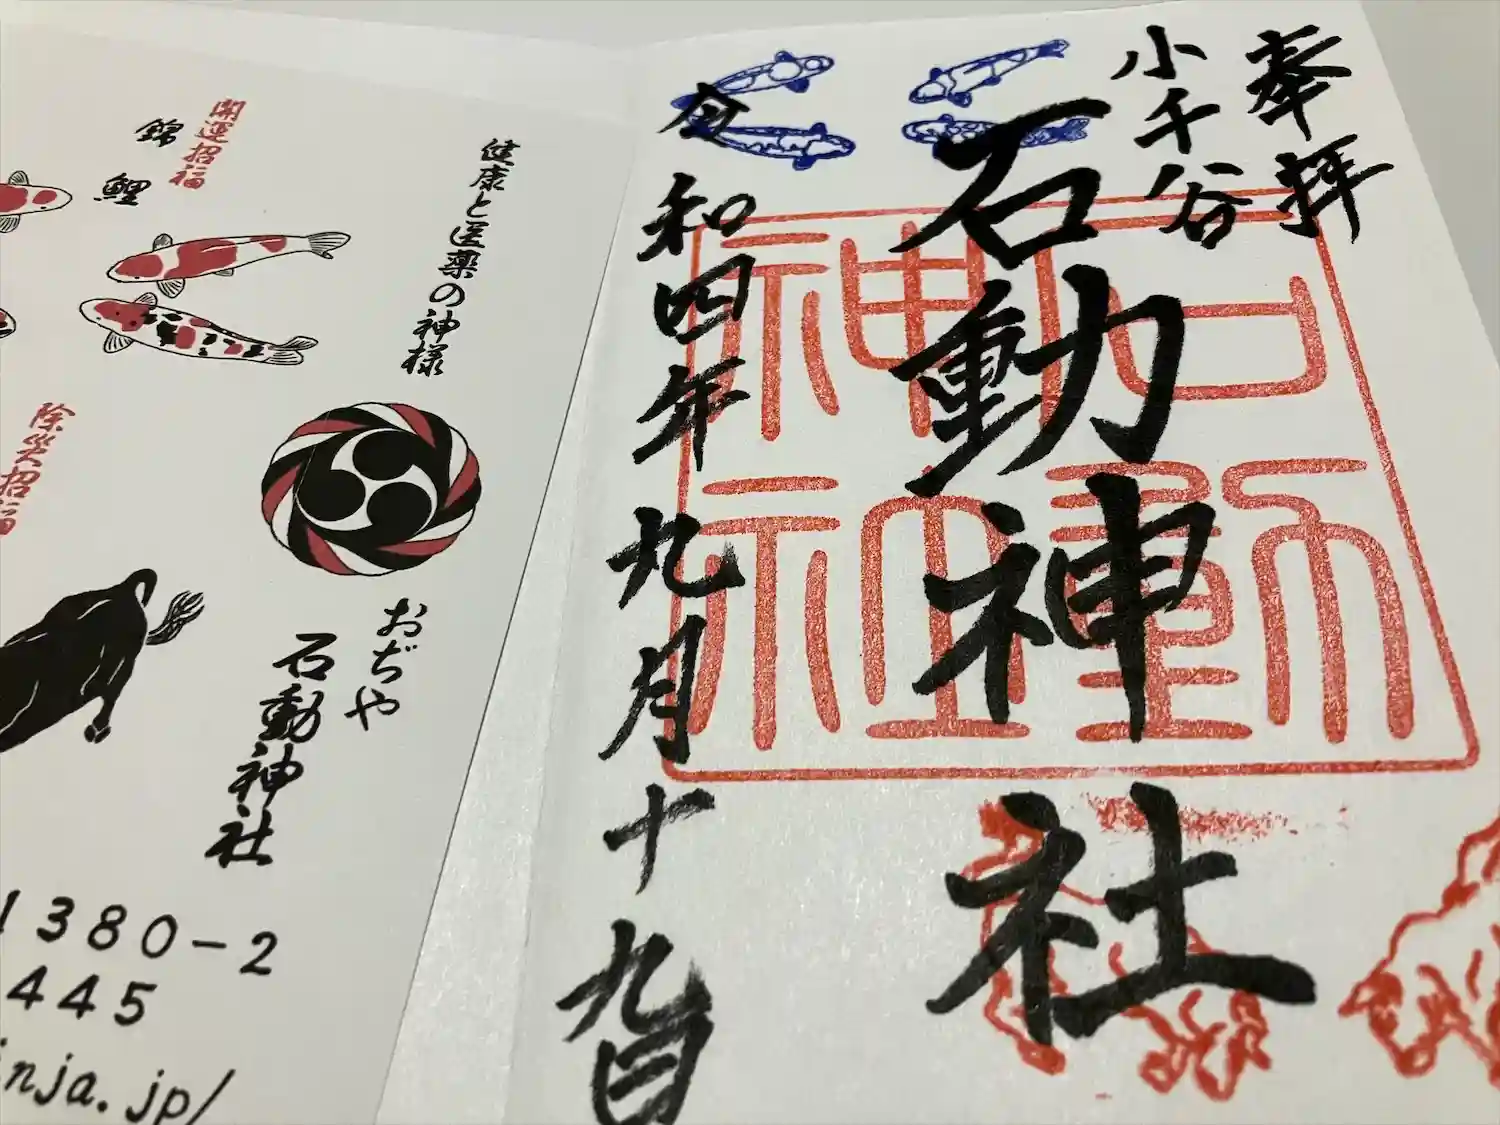 奉拝
小千谷
石動神社
令和四年九月十九日
石動神社
健康と医薬の神様
開運招福
錦鯉
除災招福
おぢや
石動神社
1380-2
445
inja.jp/